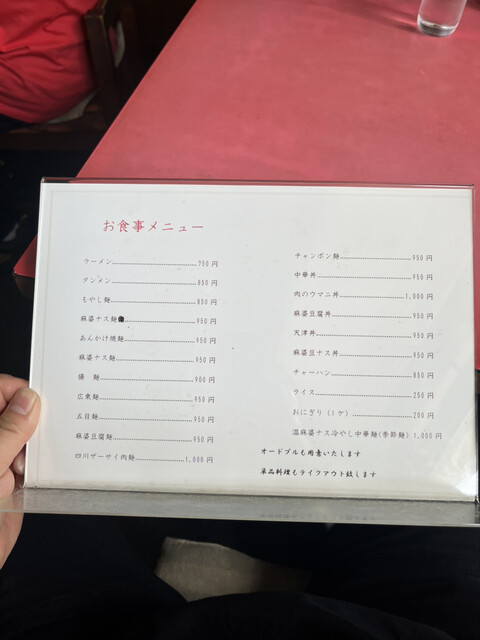 お食事メニュー
ラーメン 750円
タンメン 850円
もやし麺 850円
麻婆ナス麺 950円
あんかけ焼麺 950円
麻婆ナス麺 950円
揚 麺 900円
広東麺 950円
五目麺 950円
麻婆豆腐麺 950円
四川ザーサイ肉麺 1,000円
チャンポン麺 950円
中華丼 950円
肉のウマニ丼 1,000円
麻婆豆腐丼 950円
天津丼 950円
麻婆豆ナス丼 950円
チャーハン 850円
ライス 250円
おにぎり(1ケ) 200円
温麻婆ナス冷やし中華麺(季節麺) 1,000円
オードブルも用意いたします
単品料理もテイクアウト致します